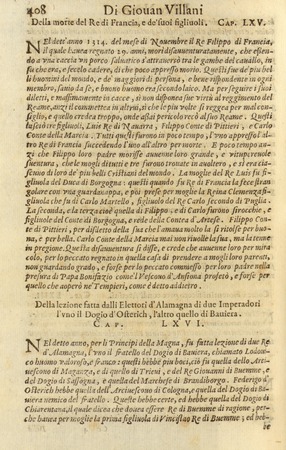 408 Di Giovan Villani
Della morte del Re di Francia, e de'suoi figliuoli. CAP. LXV.
NEl dett'anno 1314. del mese di Novembre il Re Filippo di Francia,
il quale havea regnato 29. anni, morì disaventuratamente, che essen-
do a una caccia uno porco salvatico s'attraversò tra le gambe del cavallo, in
su che era, e fecelo cadere, di che poco appresso morìo. Questi fue de'piu bel-
li huomini del mondo, e de maggiori di persona, e bene rispondente in ogni
membro, savio da se, e buono huomo era secondo laico Ma per seguire i suoi
diletti, e massimamente in caccie, si non disponea sue virtù al reggimento del
Reame, anzi il commetteva in altrui, si che le piu volte si reggea per mal con-
siglio, e quello credea troppo, onde assai pericolo recò al suo Reame. Questi
lasciò tre figliuoli, Luis Re di Navarra, Filippo Conte di Pittieri, e Carlo
Conte della Marcia. Tutti questi furono in poco tempo, l'uno appresso l'al-
tro Re di Francia succedendo l'uno all'altro per morte. E poco tempo an-
zi che Filippo loro padre morisse avvenne loro grande, e vituperevole
sventura, che le mogli di tutti e tre furono trovate in avoltero, e si era cia-
scuno di loro de' piu belli Cristiani del mondo. La moglie del Re Luis fu fi-
gliuola del Duca di Borgogna: questi quando fu Re di Francia la fece stran-
golare con una guardanappa, e poi prese per moglie la Reina Clemenza fi-
gliuola che fu di Carlo Martello, figliuol del Re Carlo secondo di Puglia.
La seconda, e la terza che quella di Filippo, e di Carlo furono sirocchie, e
figliuole del Conte di Borgogna, e rede della Contea d'Artese. Filippo Con-
te di Pittieri, per disdetto della sua che l'amava molto la si ritolse per buo-
na, e per bella. Carlo Conte della Marcia mai non rivolle la sua, ma la tenne in
pregione. Quella disaventura si disse, e crede che avvenne loro per mira-
colo, per lo peccato regnato in quella casa di prendere a mogli loro parenti,
non guardando grado, e forse per lo peccato commesso per loro padre nella
presura di Papa Bonifazio come'l Vescovo d'Ansiona profetò, e forse per
quello che aoperò ne'Tempieri, come è detto addietro.
Della lezione fatta dalli Elettori d'Alamagna di due Imperadori
l'uno il Dogio d'Osterich, l'altro quello di Baviera.
CAP. LXVI.
NEl detto anno, per li Principi della Magna, fu fatta lezione di due Re
d'Alamagna, l'uno il fratello del Dogio di Baviera, chiamato Lodovi-
co huomo valoroso, e franco: questi hebbe piu boci, ciò fu quella dello Arci-
vescovo di Maganza, e di quello di Trievi, e del Re Giovanni di Buemme, e
del Dogio di Sassogna, e quella del Marchese di Brandinborgo. Federigo d'
Osterich hebbe quella dell'Arcivescovo di Cologna, e quella del Dogio di Ba-
viera nemico del fratello. Queste hebbe certe, ed hebbe quella del Dogio di
Chiarentana, il quale dicea che dovea essere Re di Buemme di ragione, per-
che havea per moglie la prima figliuola di Vincislao Re di Buemme, ed heb-
be